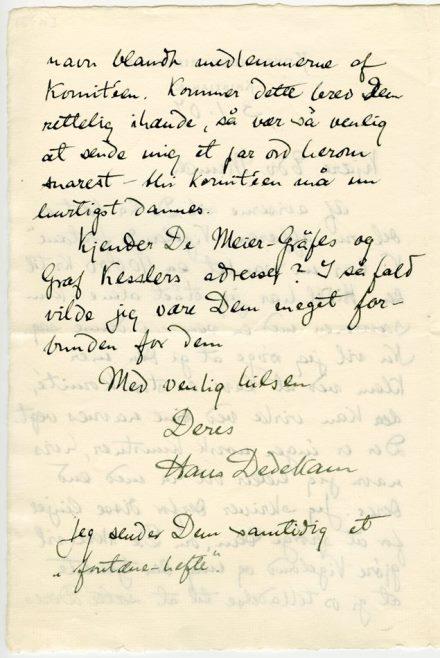 navn blandt medlemmerne af
Komitéen. Kommer dette brev Dem
rettelig ihænde, så vær så venlig
at sende mig et par ord herom
snarest – thi Komitéen må nu
hurtigst dannes.
Kjender De Meier-Gräfes og
Graf Kesslers adresse? I så fald
vilde jeg være Dem meget for-
bunden for dem
Med venlig hilsen
Deres
Hans Dedekam
Jeg sender Dem samtidig et
„fontæne-hefte".